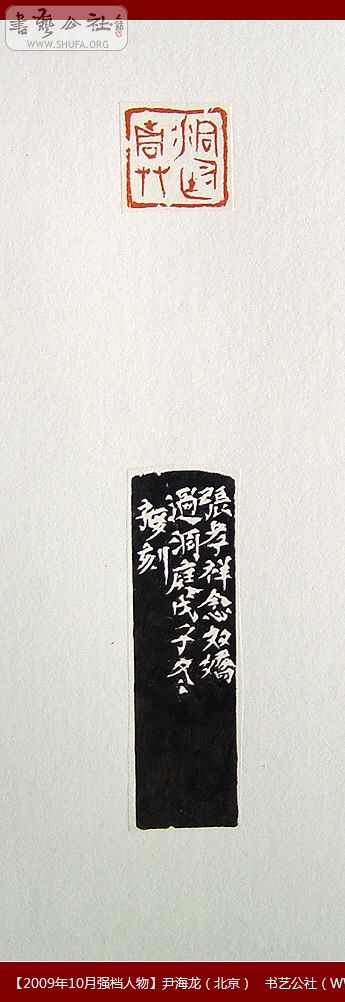 書藝公社
WWW.SHUFA.ORG
洞庭
青艸
張孝祥念奴嬌
過洞庭戊子冬
刻
【2009年10月强档人物】尹海龙（北京） 书艺公社（W